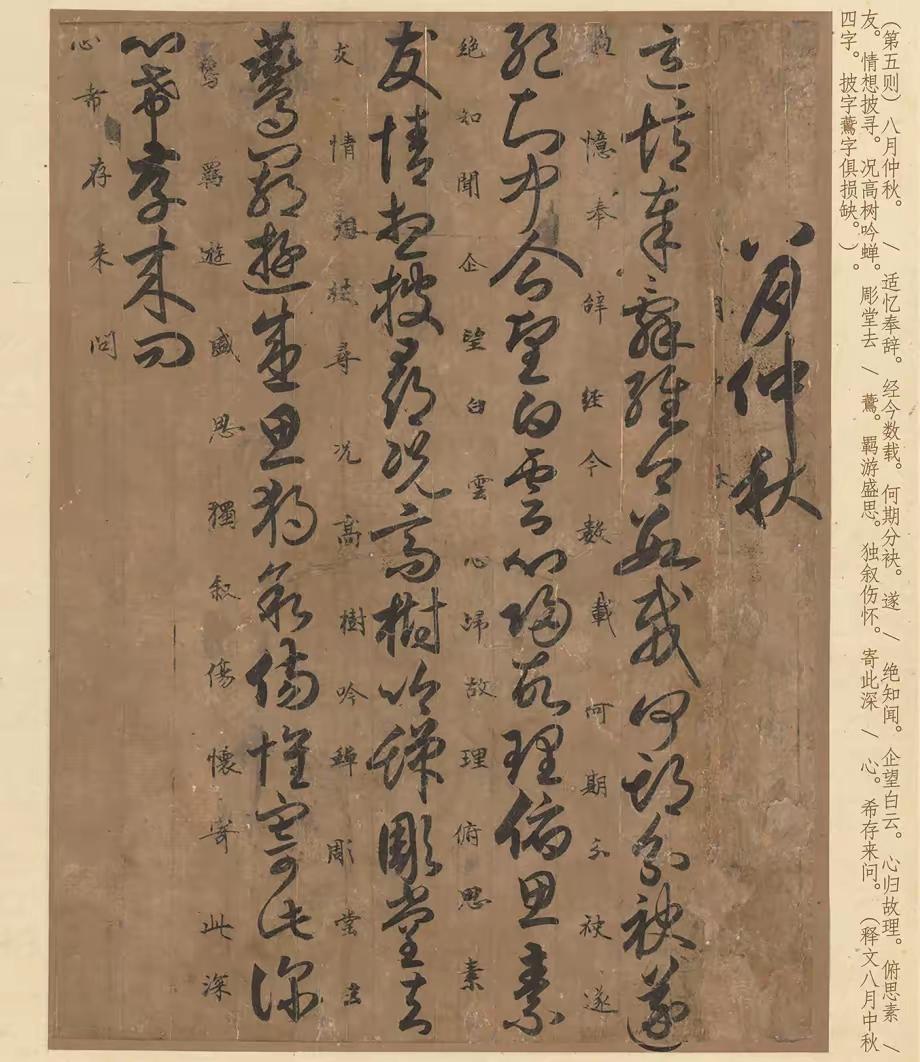 （第五则）八月仲秋。/ 适忆奉辞。经今数载。何期分袂。遂 / 绝知闻。企望白云。心归故理。俯思素 /
友。情想披寻。况高树吟蝉。彫堂去 / 鷰。羁游盛思。独叙伤怀。寄此深 / 心。希存来问。（释文八月中秋
四字。披字鷰字俱损缺。）
八月仲秋
月中
適憶奉辭經今數載何期分袂遂
憶奉辞経今數載何期分袂遂
絶知聞企望白雲心歸故理俯思素
絶知聞企望白雲心歸故理俯思素
友情想披尋況高樹吟蟬彫堂去
友情想披尋况高樹吟蟬彫堂去
鷰羈遊盛思獨叙傷懷寄此深
鷰羈遊盛思獨叙傷懷寄此深
心希存来問
心希存来問